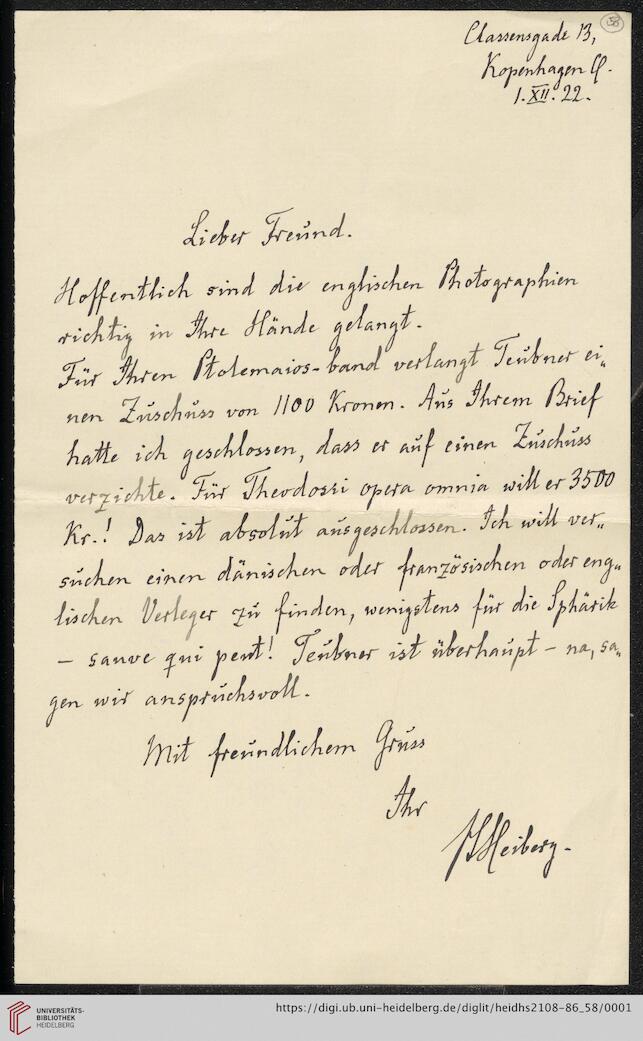 58
Classensgade 13,
Kopenhagen Ø.
1.XII.22.
Lieber Freund.
Hoffentlich sind die englischen Photographien
richtig in Ihre Hände gelangt.
Für Ihren Ptolemaios-band verlangt Teubner ei-
nen Zuschuss von 1100 Kronen. Aus Ihrem Brief
hatte ich geschlossen, dass er auf einen Zuschuss
verzichte. Für Theodosii opera omnia will er 3500
Kr.! Das ist absolut ausgeschlossen. Ich will ver-
suchen einen dänischen oder französischen oder eng-
lischen Verleger zu finden, wenigstens für die Sphärik
– sauve qui peut! Teubner ist überhaupt – na, sa-
gen wir anspruchsvoll.
Mit freundlichem Gruss
Ihr
JLHeiberg.
UNIVERSITÄTS-
BIBLIOTHEK
HEIDELBERG
https://digi.ub.uni-heidelberg.de/diglit/heidhs2108-86_58/0001